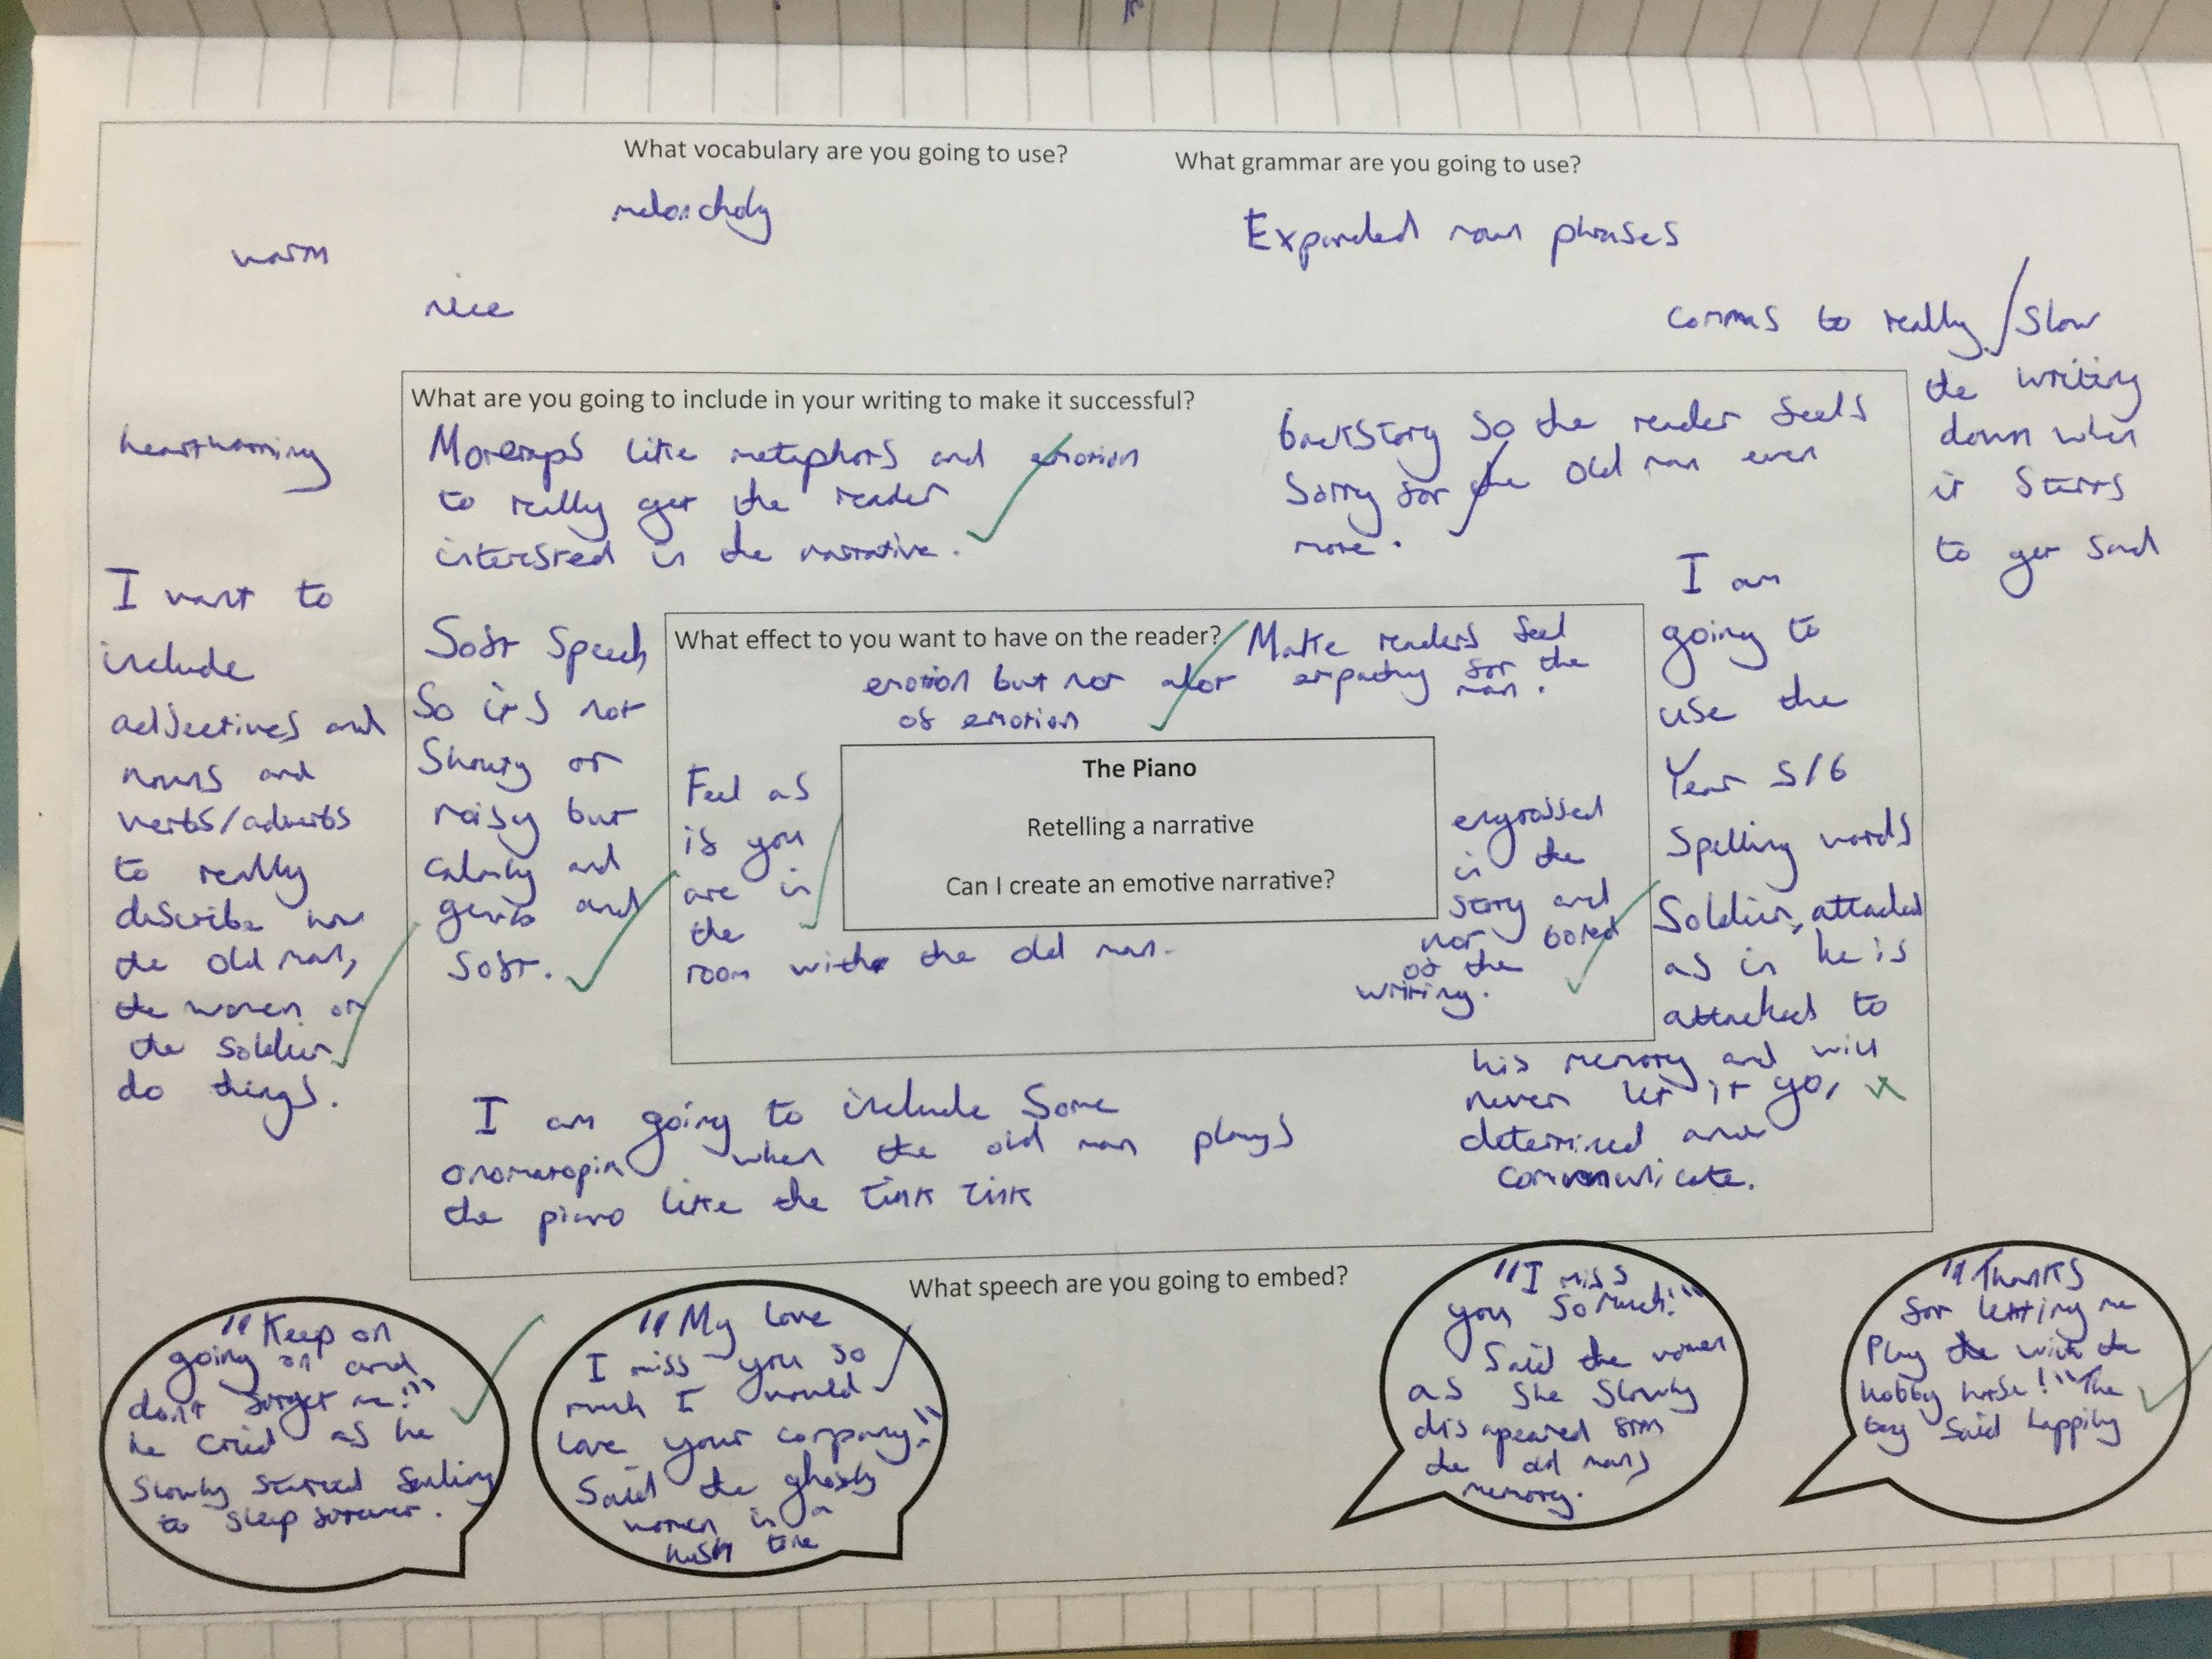 What vocabulary are you going to use?
melancholy
warm
nice
heartwarming
I want to
include
adjectives and
nouns and
verbs/adverbs
to really
describe how
the old man,
the women or
the soldier
do things.
What grammar are you going to use?
Expanded noun phrases
commas to really slow
the writing
down when
it starts
to get sad
What are you going to include in your writing to make it successful?
like metaphors and emotion
to really get the reader
interested in the narrative.
backstory so the reader feels
sorry for the old man even
more.
Soft speech
so it's not
shouty or
noisy but
calmly and
and
soft.
I am
going to
use the
Year 5/6
spelling words
Soldier, attached
as in he is
attached to
his memory and will
never let it go,
determined and
communicate.
I am going to include some
onomatopia when the old man plays
the piano like the tink tink
What effect to you want to have on the reader?
emotion but not alot
of emotion
Make readers feel
empathy for the
man.
Feel as
if you
are in
the
room with the old man.
engrossed
in the
story and
not bored
of the
writing.
The Piano
Retelling a narrative
Can I create an emotive narrative?
What speech are you going to embed?
"Keep on
going on and
don't forget me!"
he cried as he
slowly started falling
to sleep forever.
"My love
I miss you so
much I would
love your company!"
Said the ghostly
women in a
hush tone
"I miss
you so much!"
Said the women
as she slowly
disapeared from
the old mans
memory.
"Thanks
for letting me
Play with the
hobby horse!" The
boy said happily